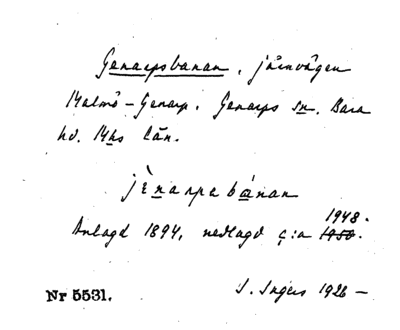 Genarpsbanan, järnvägen
Malmö-Genarp. Genarps sn. Bara
hd. Mhs län.
jènarpsbánan
1948.
Anlagd 1894, nedlagd c:a 1950.
Nr 5531.
I. Ingers 1926 –